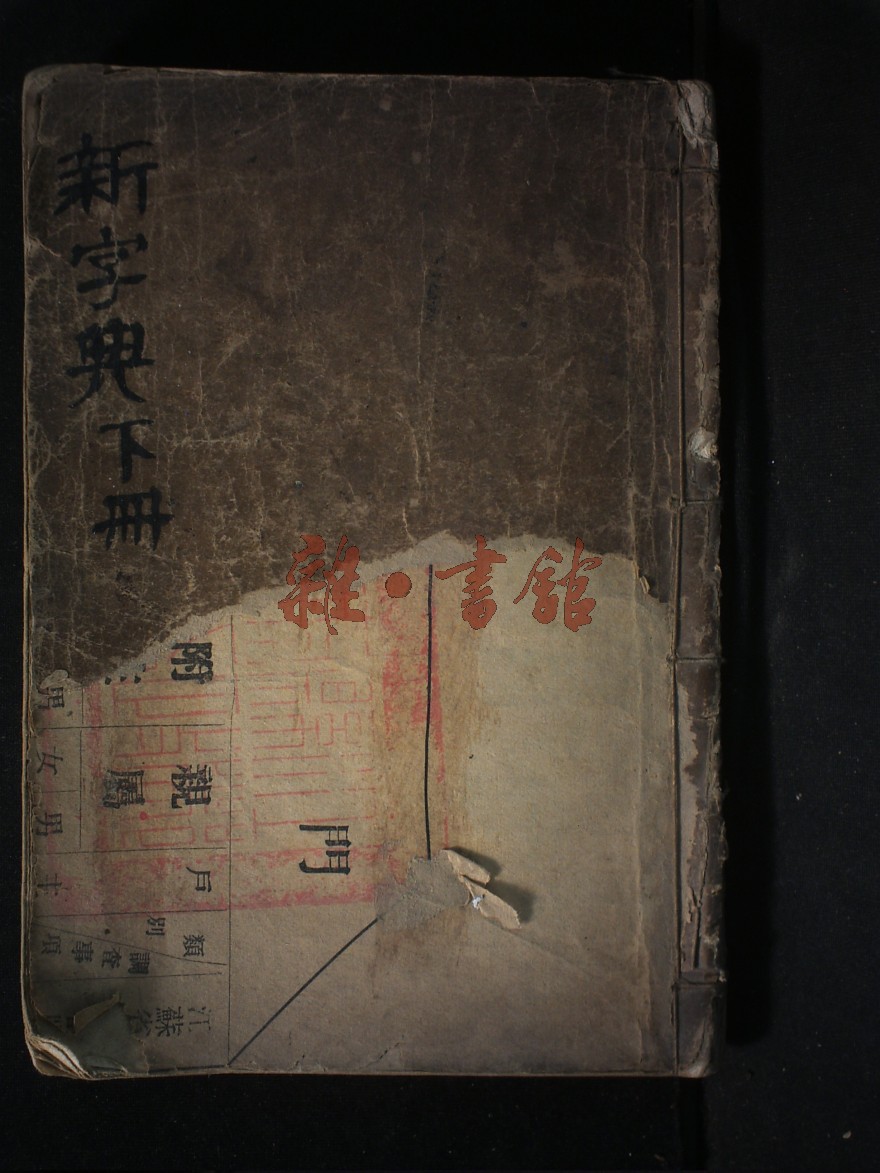 新字典下冊
雜·書館
門
附
親屬
男
女
男
戶
類別
調查事項
江蘇省